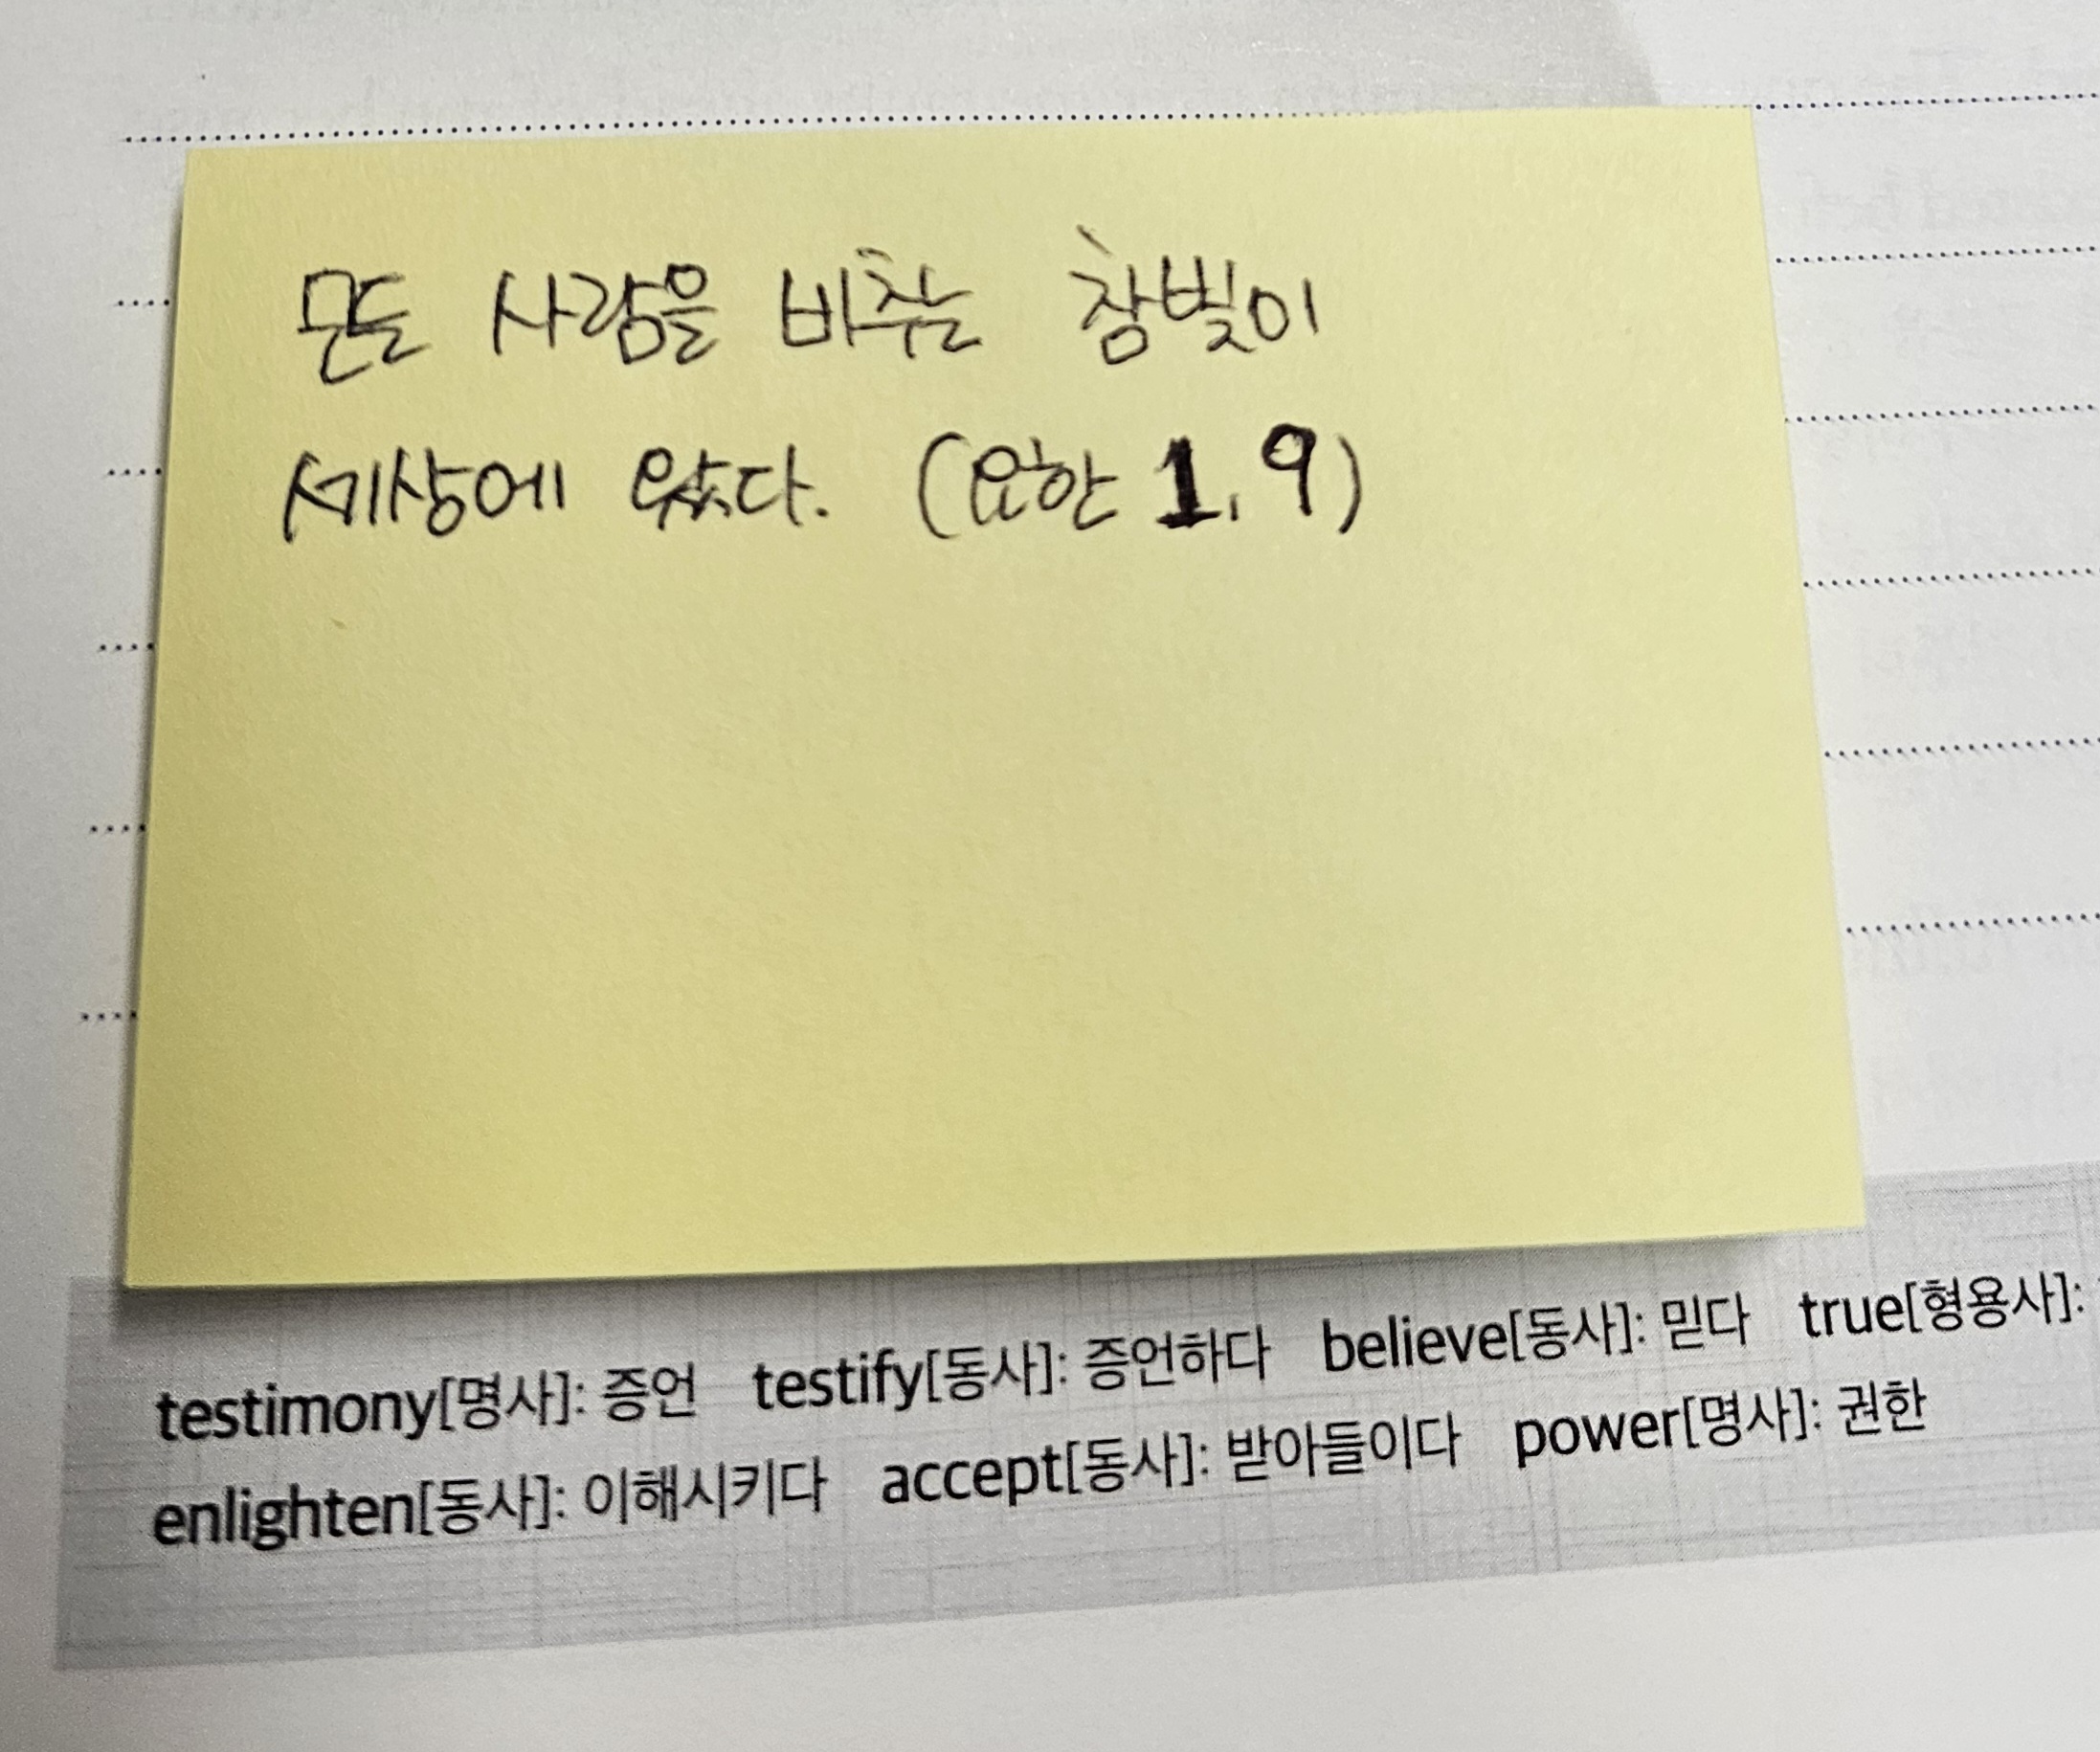 모든 사람을 비추는 참빛이
세상에 왔다. (요한 1, 9)
testimony[명사]: 증언 testify[동사]: 증언하다 believe[동사]: 믿다 true[형용사]:
enlighten[동사]: 이해시키다 accept[동사]: 받아들이다 power[명사]: 권한